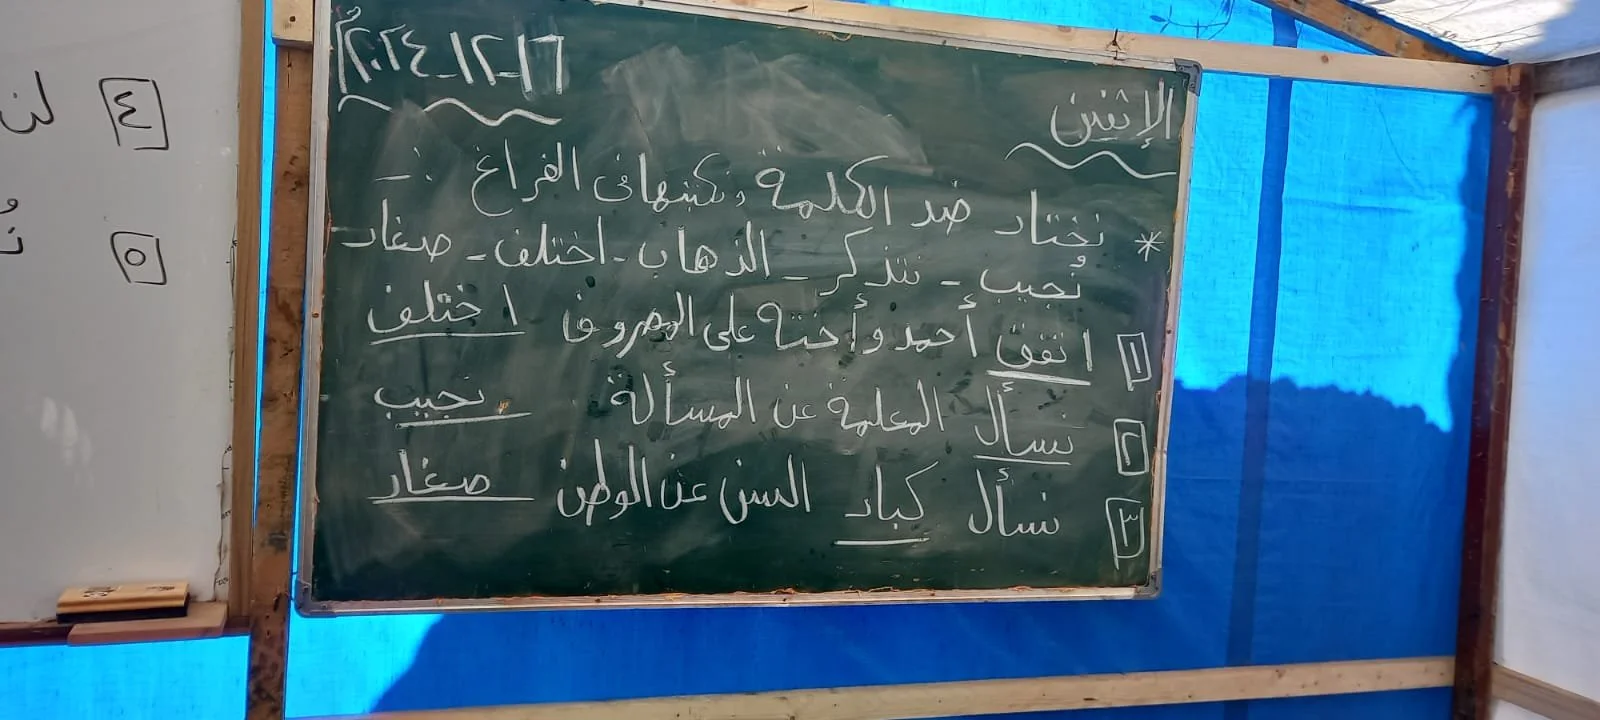 الإثنين
١٦-١٢-٢٠٢٤م
* نختار ضد الكلمة ونكتبها في الفراغ :-
نُجيب - نتذكر - الذهاب - اختلف - صغار
١ اتفق أحمد وأخته على المصروف اختلف
٢ نسأل المعلمة عن المسألة نجيب
٣ نسأل كبار السن عن الوطن صغار
٤ لن
٥